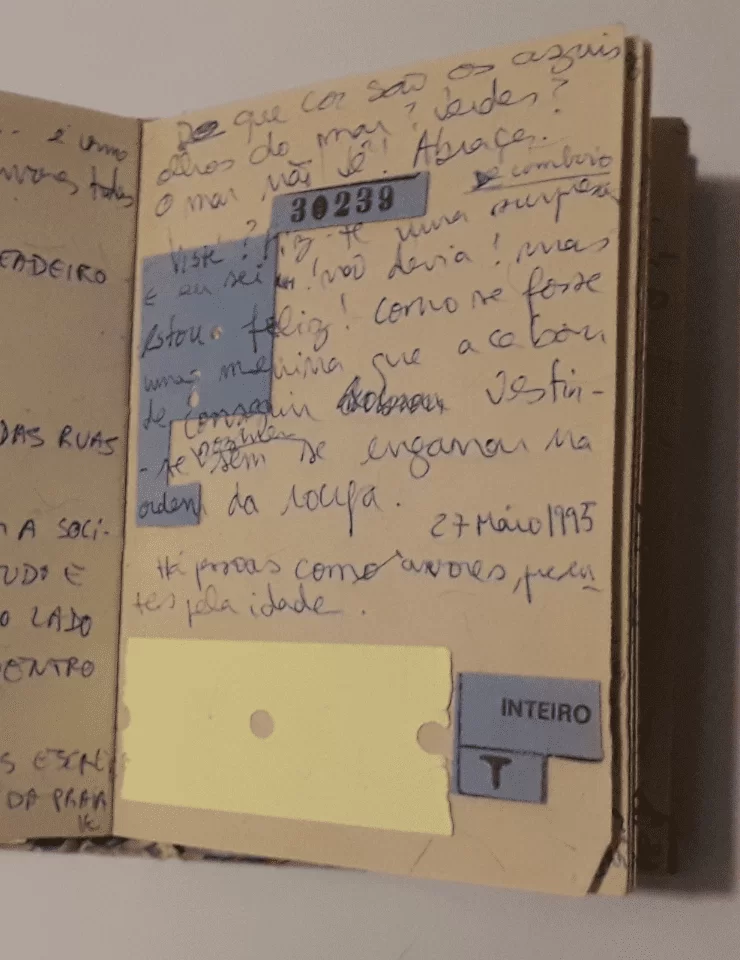 é uma
todas
EADEIRO
DAS RUAS
A SOCI-
TUDO E
O LADO
DENTRO
S ESCRE
DA PRAR
De que cor são os azuis
olhos do mar? Verdes?
O mar não vê! Abraça.
De comboio
30239
Viste? Fiz-te uma surpresa
E eu sei! não devia! mas
estou feliz! como se fosse
uma menina que acabou
de conseguir vestir-
-se sem se enganar na
ordem da roupa.
27 Maio 1995
Há pessoas como árvores, presen-
tes pela idade.
INTEIRO
T